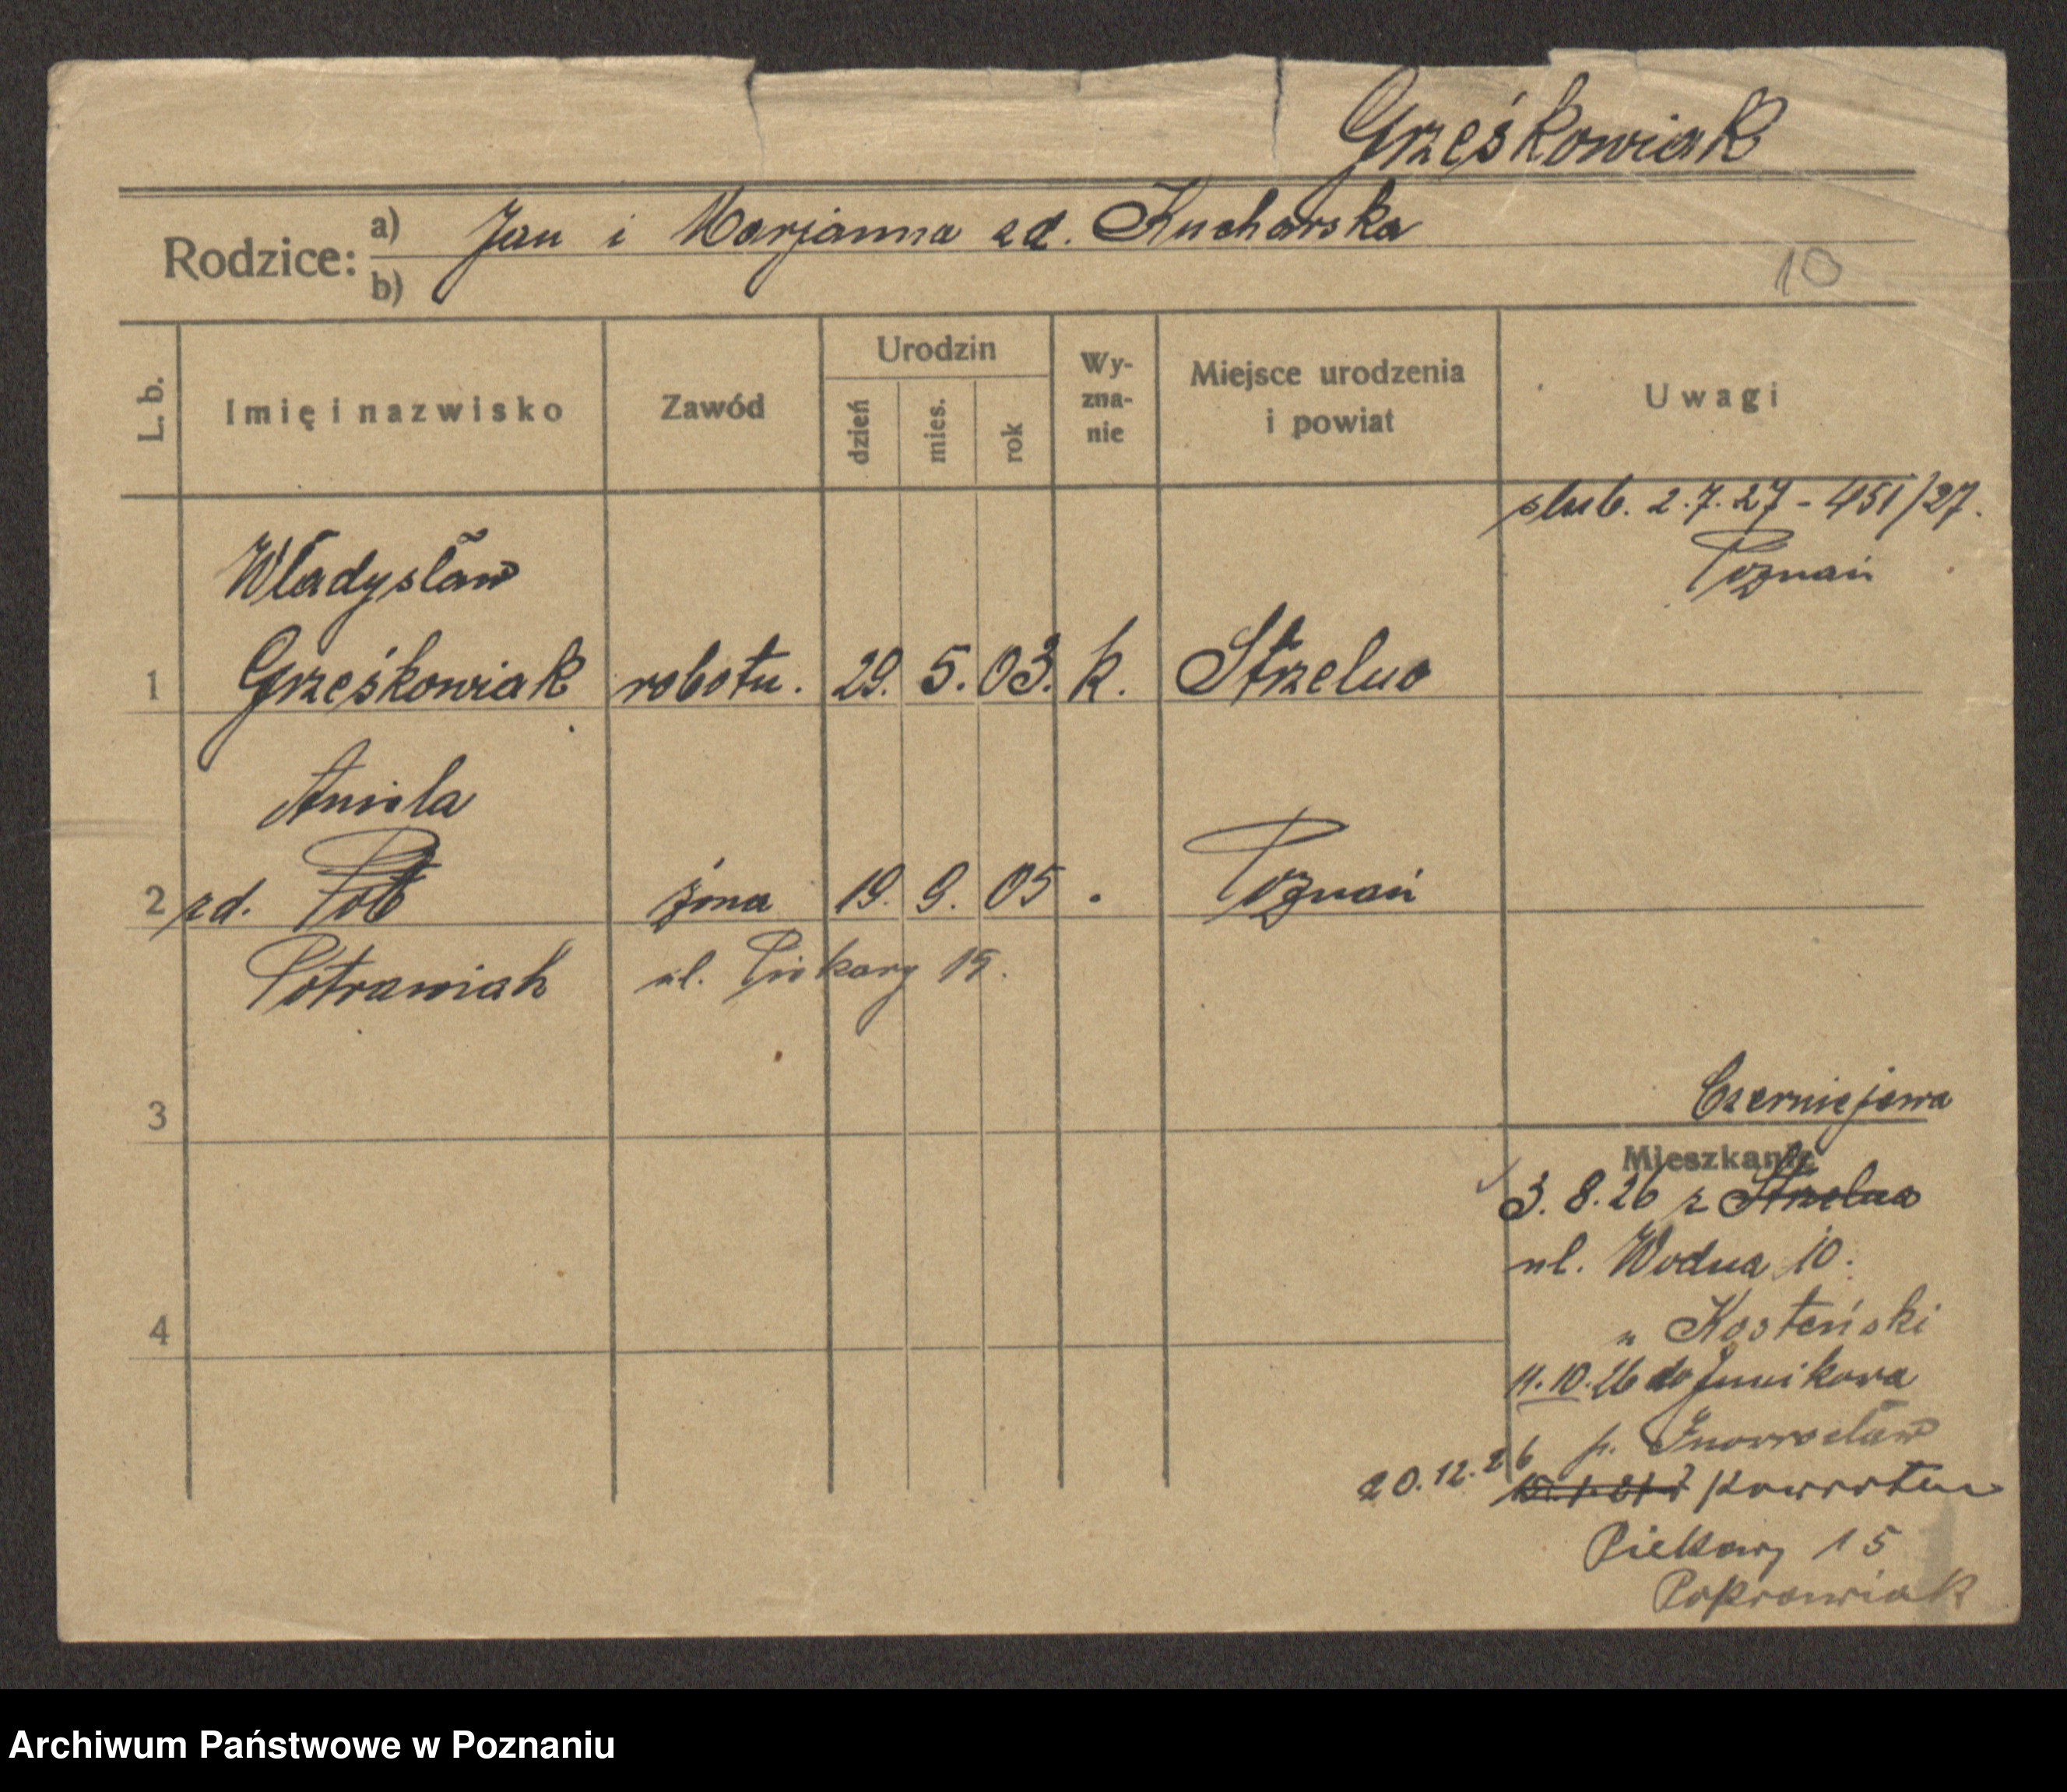 Grześkowiak
Rodzice: a) Jan i Marjanna zd. Kucharska
b)
10
L. b. Imię i nazwisko Zawód Urodzin dzień mies. rok Wyznanie Miejsce urodzenia i powiat Uwagi
slub. 2.7.27 - 451/27.
Poznań
Władysław
1 Grześkowiak robotn. 29. 5. 03. k. Strzelno
Aniela
2 zd. Pot żona 19. 9. 05 . Poznań
Potrawiak ul. Piekary 15.
3
Czerniejewa
Mieszkanie
3. 8. 26 z Strzelna
ul. Wodna 10.
4
" Kosteński
11. 10. 26 do Junikowa
p. Inowrocław
20. 12. 26 z powrotem
Piekary 15